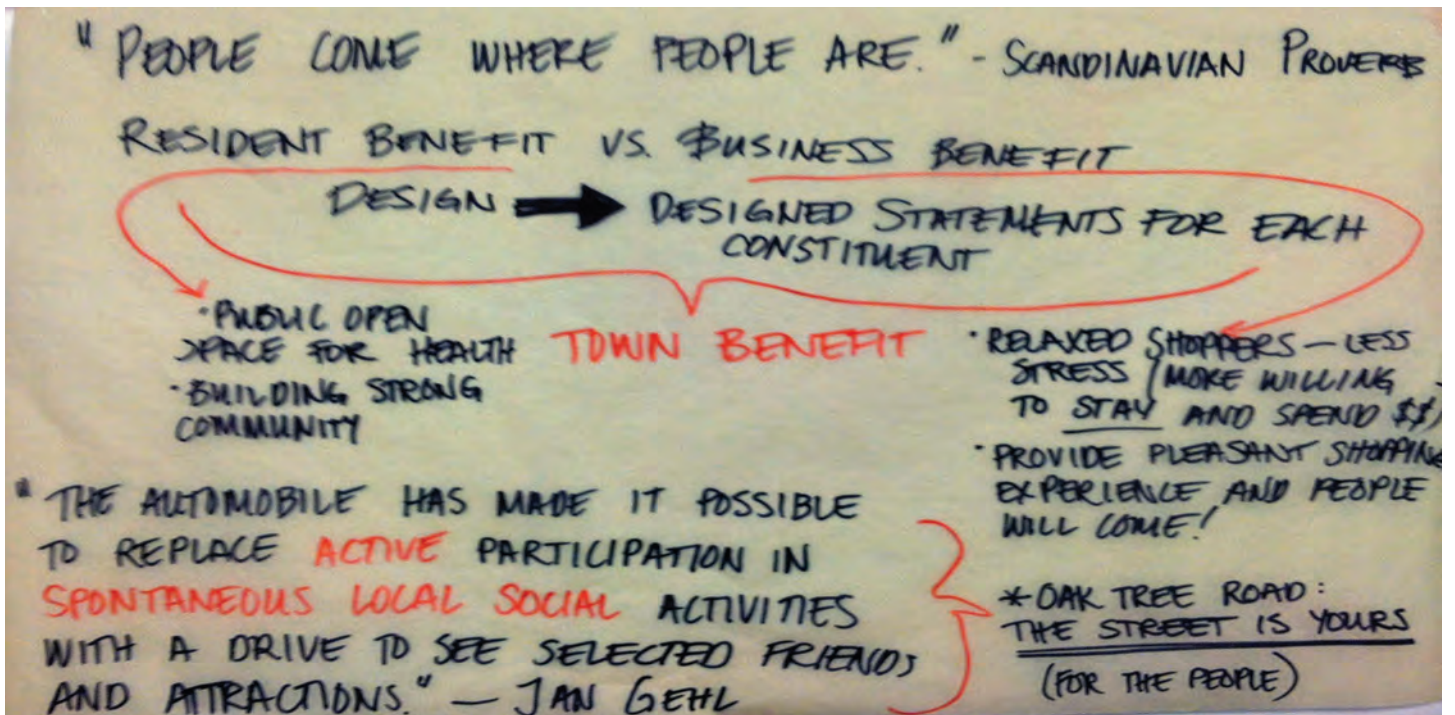 "PEOPLE COME WHERE PEOPLE ARE." - SCANDINAVIAN PROVERB
RESIDENT BENEFIT VS. BUSINESS BENEFIT
DESIGN → DESIGNED STATEMENTS FOR EACH
CONSTITUENT
• PUBLIC OPEN
SPACE FOR HEALTH
• BUILDING STRONG
COMMUNITY
TOWN BENEFIT
• RELAXED SHOPPERS — LESS
STRESS / MORE WILLING
TO STAY AND SPEND $$
• PROVIDE PLEASANT SHOPPING
EXPERIENCE AND PEOPLE
WILL COME!
"THE AUTOMOBILE HAS MADE IT POSSIBLE
TO REPLACE ACTIVE PARTICIPATION IN
SPONTANEOUS LOCAL SOCIAL ACTIVITIES
WITH A DRIVE TO SEE SELECTED FRIENDS
AND ATTRACTIONS." — JAN GEHL
* OAK TREE ROAD:
THE STREET IS YOURS
(FOR THE PEOPLE)